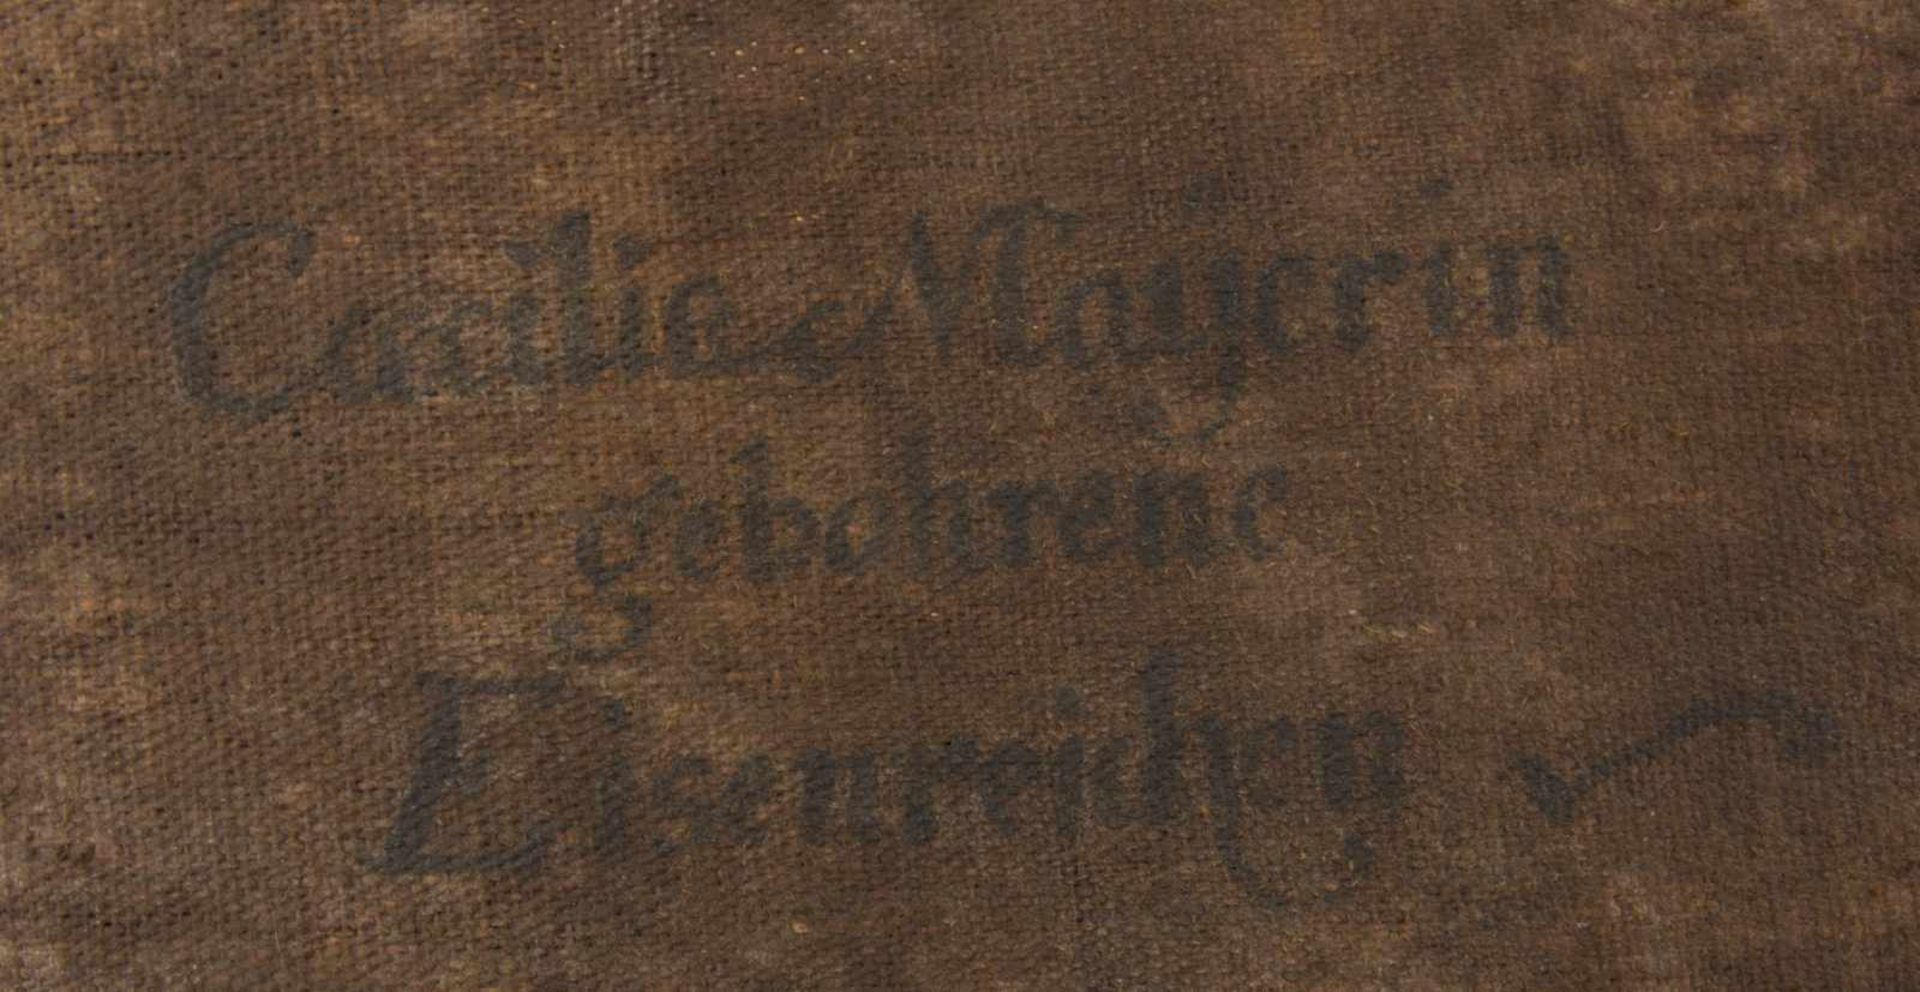 Caecilia Maÿerin
gebohrene
Eisenreichin